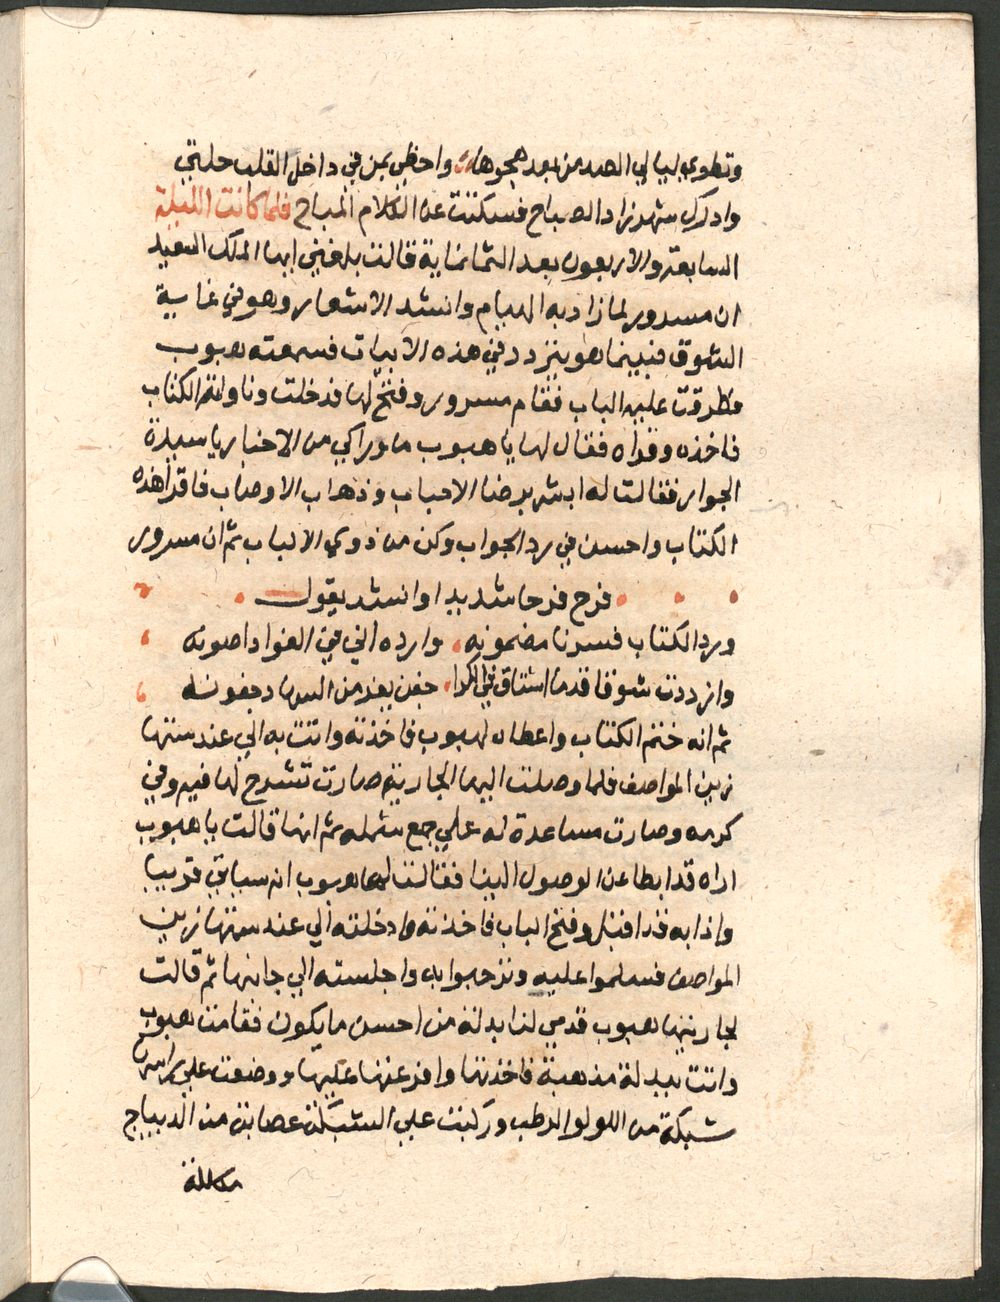 وتطوي ليالي الصد من بعد هجوها واحظي بمن في داخل القلب حلتي
وادرك شهرزاد الصباح فسكتت عن الكلام المباح فلما كانت الليلة
السابعة والاربعون بعد الثمانماية قالت بلغني ايها الملك السعيد
ان مسرور لما زاد به الهيام وانشد الاشعار وهو في غاية
الشوق فبينما هو يتردد في هذه الابيات فسمعته هبوب
فطرقت عليه الباب فقام مسرور وفتح لها فدخلت وناولته الكتاب
فاخذه وقراه فقال لها يا هبوب ما وراكي من الاخبار يا سيدة
الجوار فقالت له ابشر برضا الاحباب وذهاب الاوصاب فاقرا هذه
الكتاب واحسن في رد الجواب وكن من ذوي الالباب ثم ان مسرور
فرح فرحا شديدا وانشد يقول
ورد الكتاب فسرنا مضمونه وارده اني في الفواد اصونه
وازددت شوقا قدما اشتاق في الكرا جفن يفز من السهاد جفونه
ثم انه ختم الكتاب واعطاه لهبوب فاخذته واتت به الي عند ستها
زين المواصف فلما وصلت اليها الجارية صارت تشرح لها فيه وفي
كرمه وصارت مساعدة له علي جمع شمله ثم انها قالت يا هبوب
اراه قد ابطا عن الوصول الينا فقالت لها هبوب انه سياتي قريبا
واذا به قد اقبل وفتح الباب فاخذته وادخلته الي عند ستها زين
المواصف فسلموا عليه وترحبوا به واجلسته الي جانبها ثم قالت
لجاريتها هبوب قدمي لنا بدلة من احسن ما يكون فقامت هبوب
واتت ببدلة مذهبة فاخذتها وافرغتها عليها ووضعت علي راسها
شبكة من اللولو الرطب وركبت علي الشبكة عصابة من الديباج
مكللة